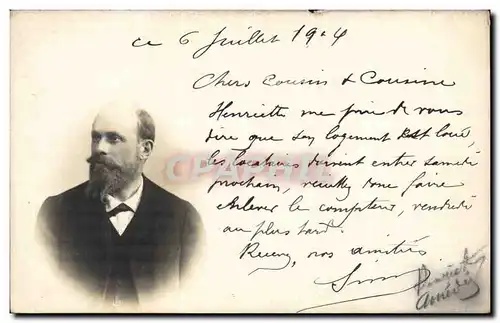 ce 6 Juillet 1904
Chers Cousin & Cousine
Henriette me prie de vous
dire que son logement est loué,
les locataires doivent entrer samedi
prochain, veuillez donc faire
enlever le compteur, vendredi
au plus tard.
Recevez, nos amitiés
CPAPHIL